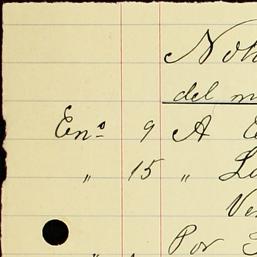 Not
del m
En⁰ 9 A
" 15 " L
Ve
Por